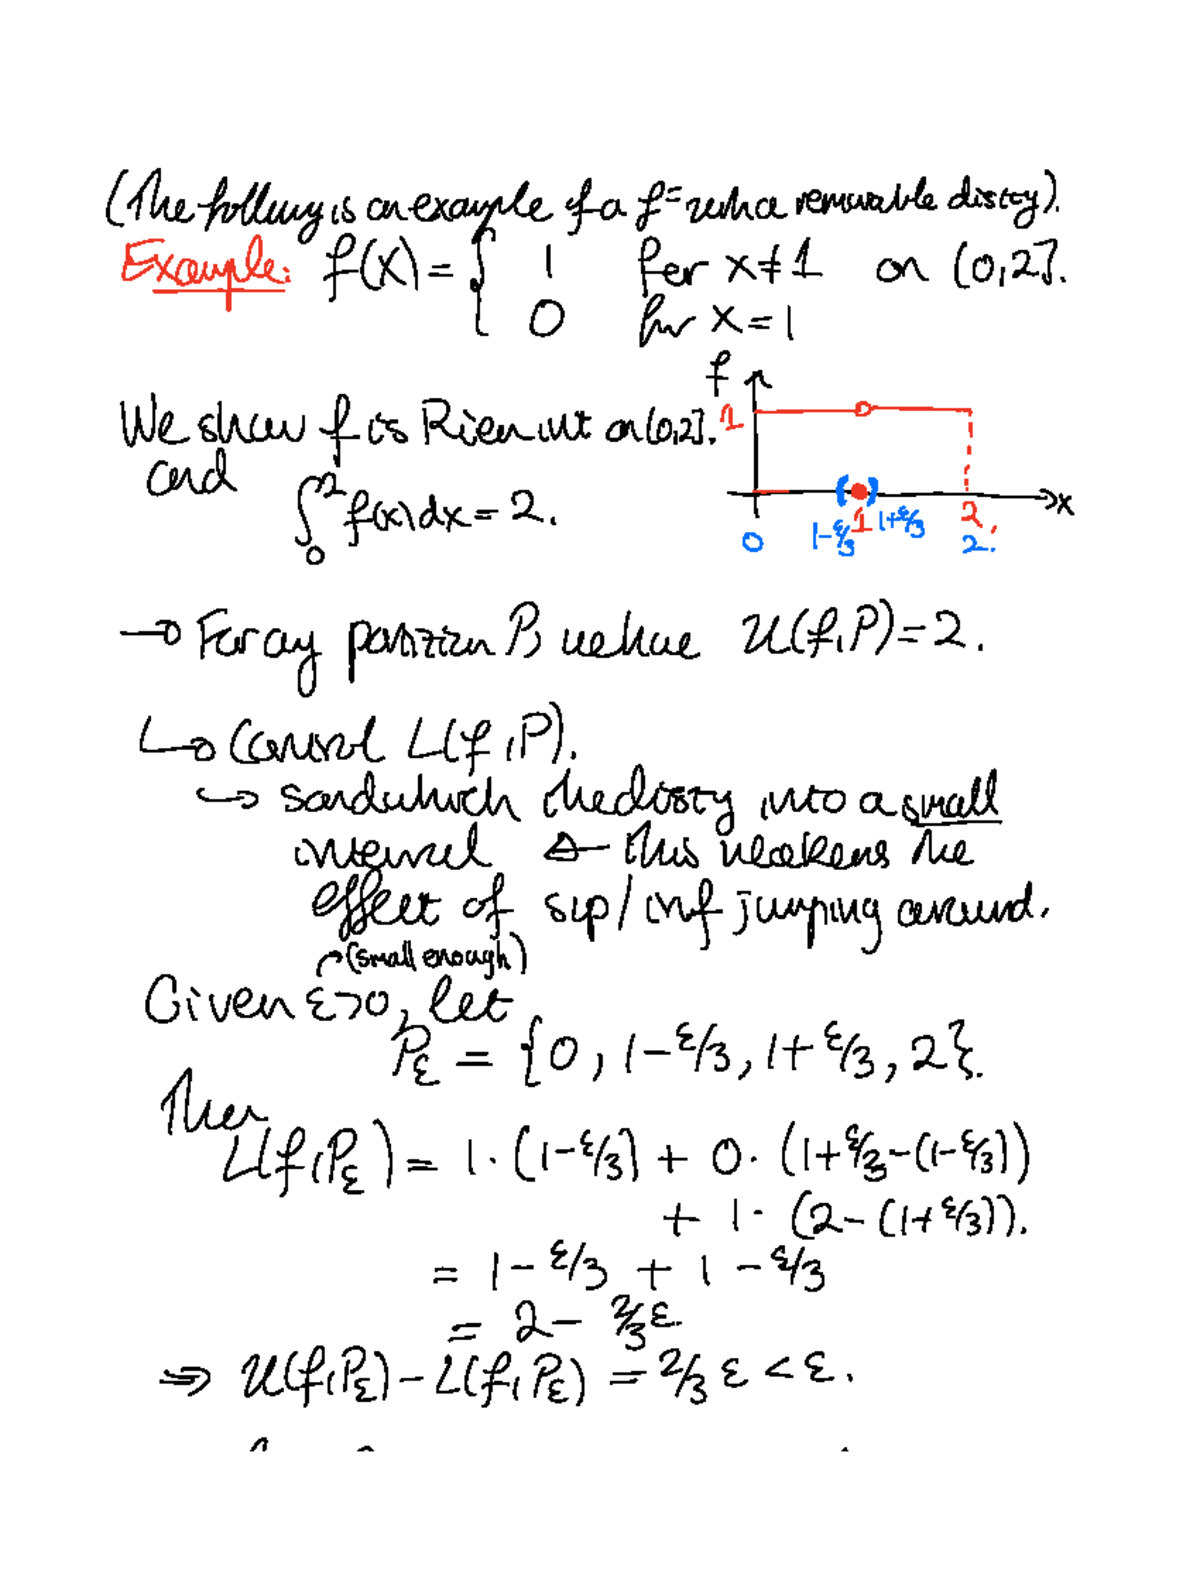 (The following is an example of a fⁿ with a removable discty).
Example: f(x) = { 1 for x≠1 on [0,2].
0 for x=1
We show f is Riem int on [0,2].
and
∫₀² f(x)dx = 2.
f
1
x
0 1-ε/3 1 1+ε/3 2
2
→ For any partition P, we have U(f,P)=2.
↳ Control L(f,P).
↪ sandwhich the discty into a small
interval ← this weakens the
effect of sup/inf jumping around.
(small enough)
Given ε>0, let
Pε = {0, 1-ε/3, 1+ε/3, 2}.
Then
L(f,Pε) = 1·(1-ε/3) + 0·(1+ε/3-(1-ε/3))
+ 1·(2-(1+ε/3)).
= 1-ε/3 + 1-ε/3
= 2-2/3ε.
⇒ U(f,Pε)-L(f,Pε) = 2/3 ε < ε.